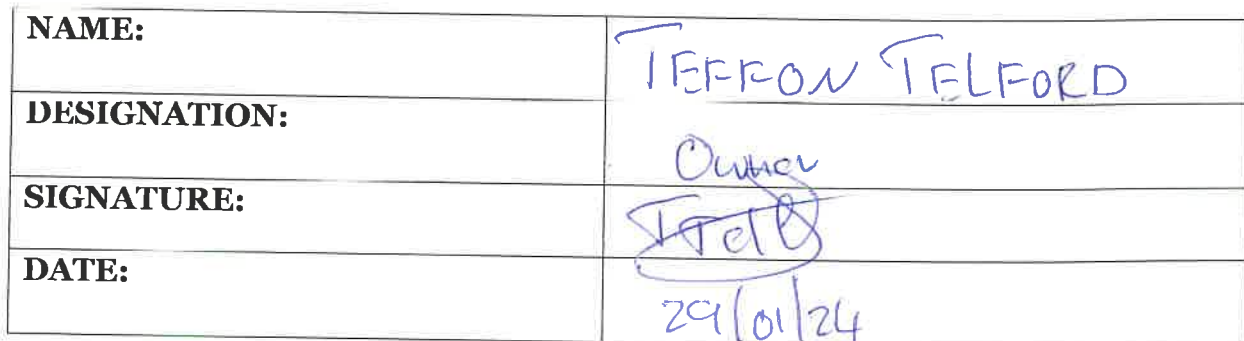 NAME: TEFFON TELFORD
DESIGNATION: Owner
SIGNATURE:
DATE: 29/01/24